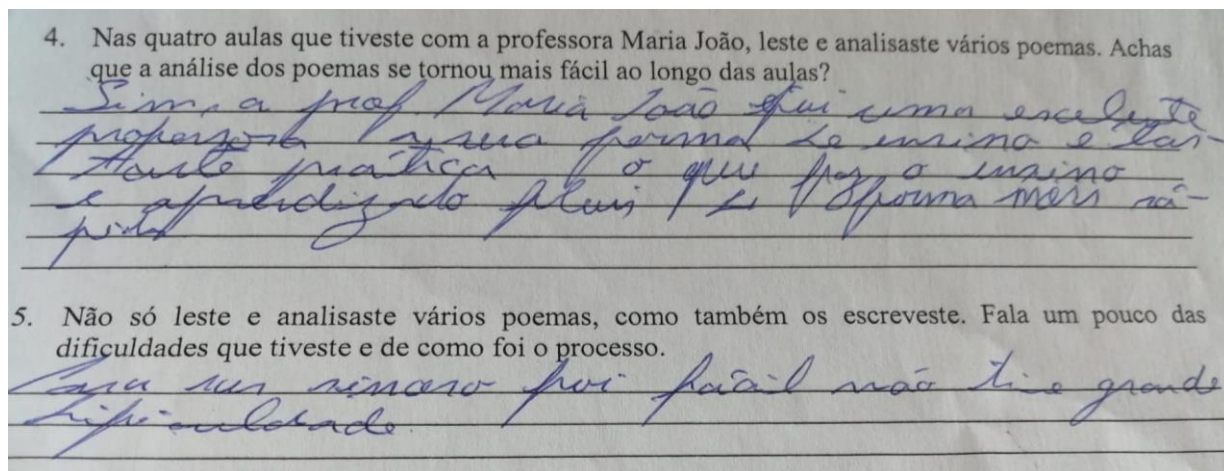 4. Nas quatro aulas que tiveste com a professora Maria João, leste e analisaste vários poemas. Achas
que a análise dos poemas se tornou mais fácil ao longo das aulas?
Sim, a prof Maria João foi uma excelente
professora, a sua forma de ensino e bas-
tante prática o que faz o ensino
e aprendizado fluir de forma mais rá-
pida
5. Não só leste e analisaste vários poemas, como também os escreveste. Fala um pouco das
dificuldades que tiveste e de como foi o processo.
Para ser sincero foi fácil não tive grande
dificuldade